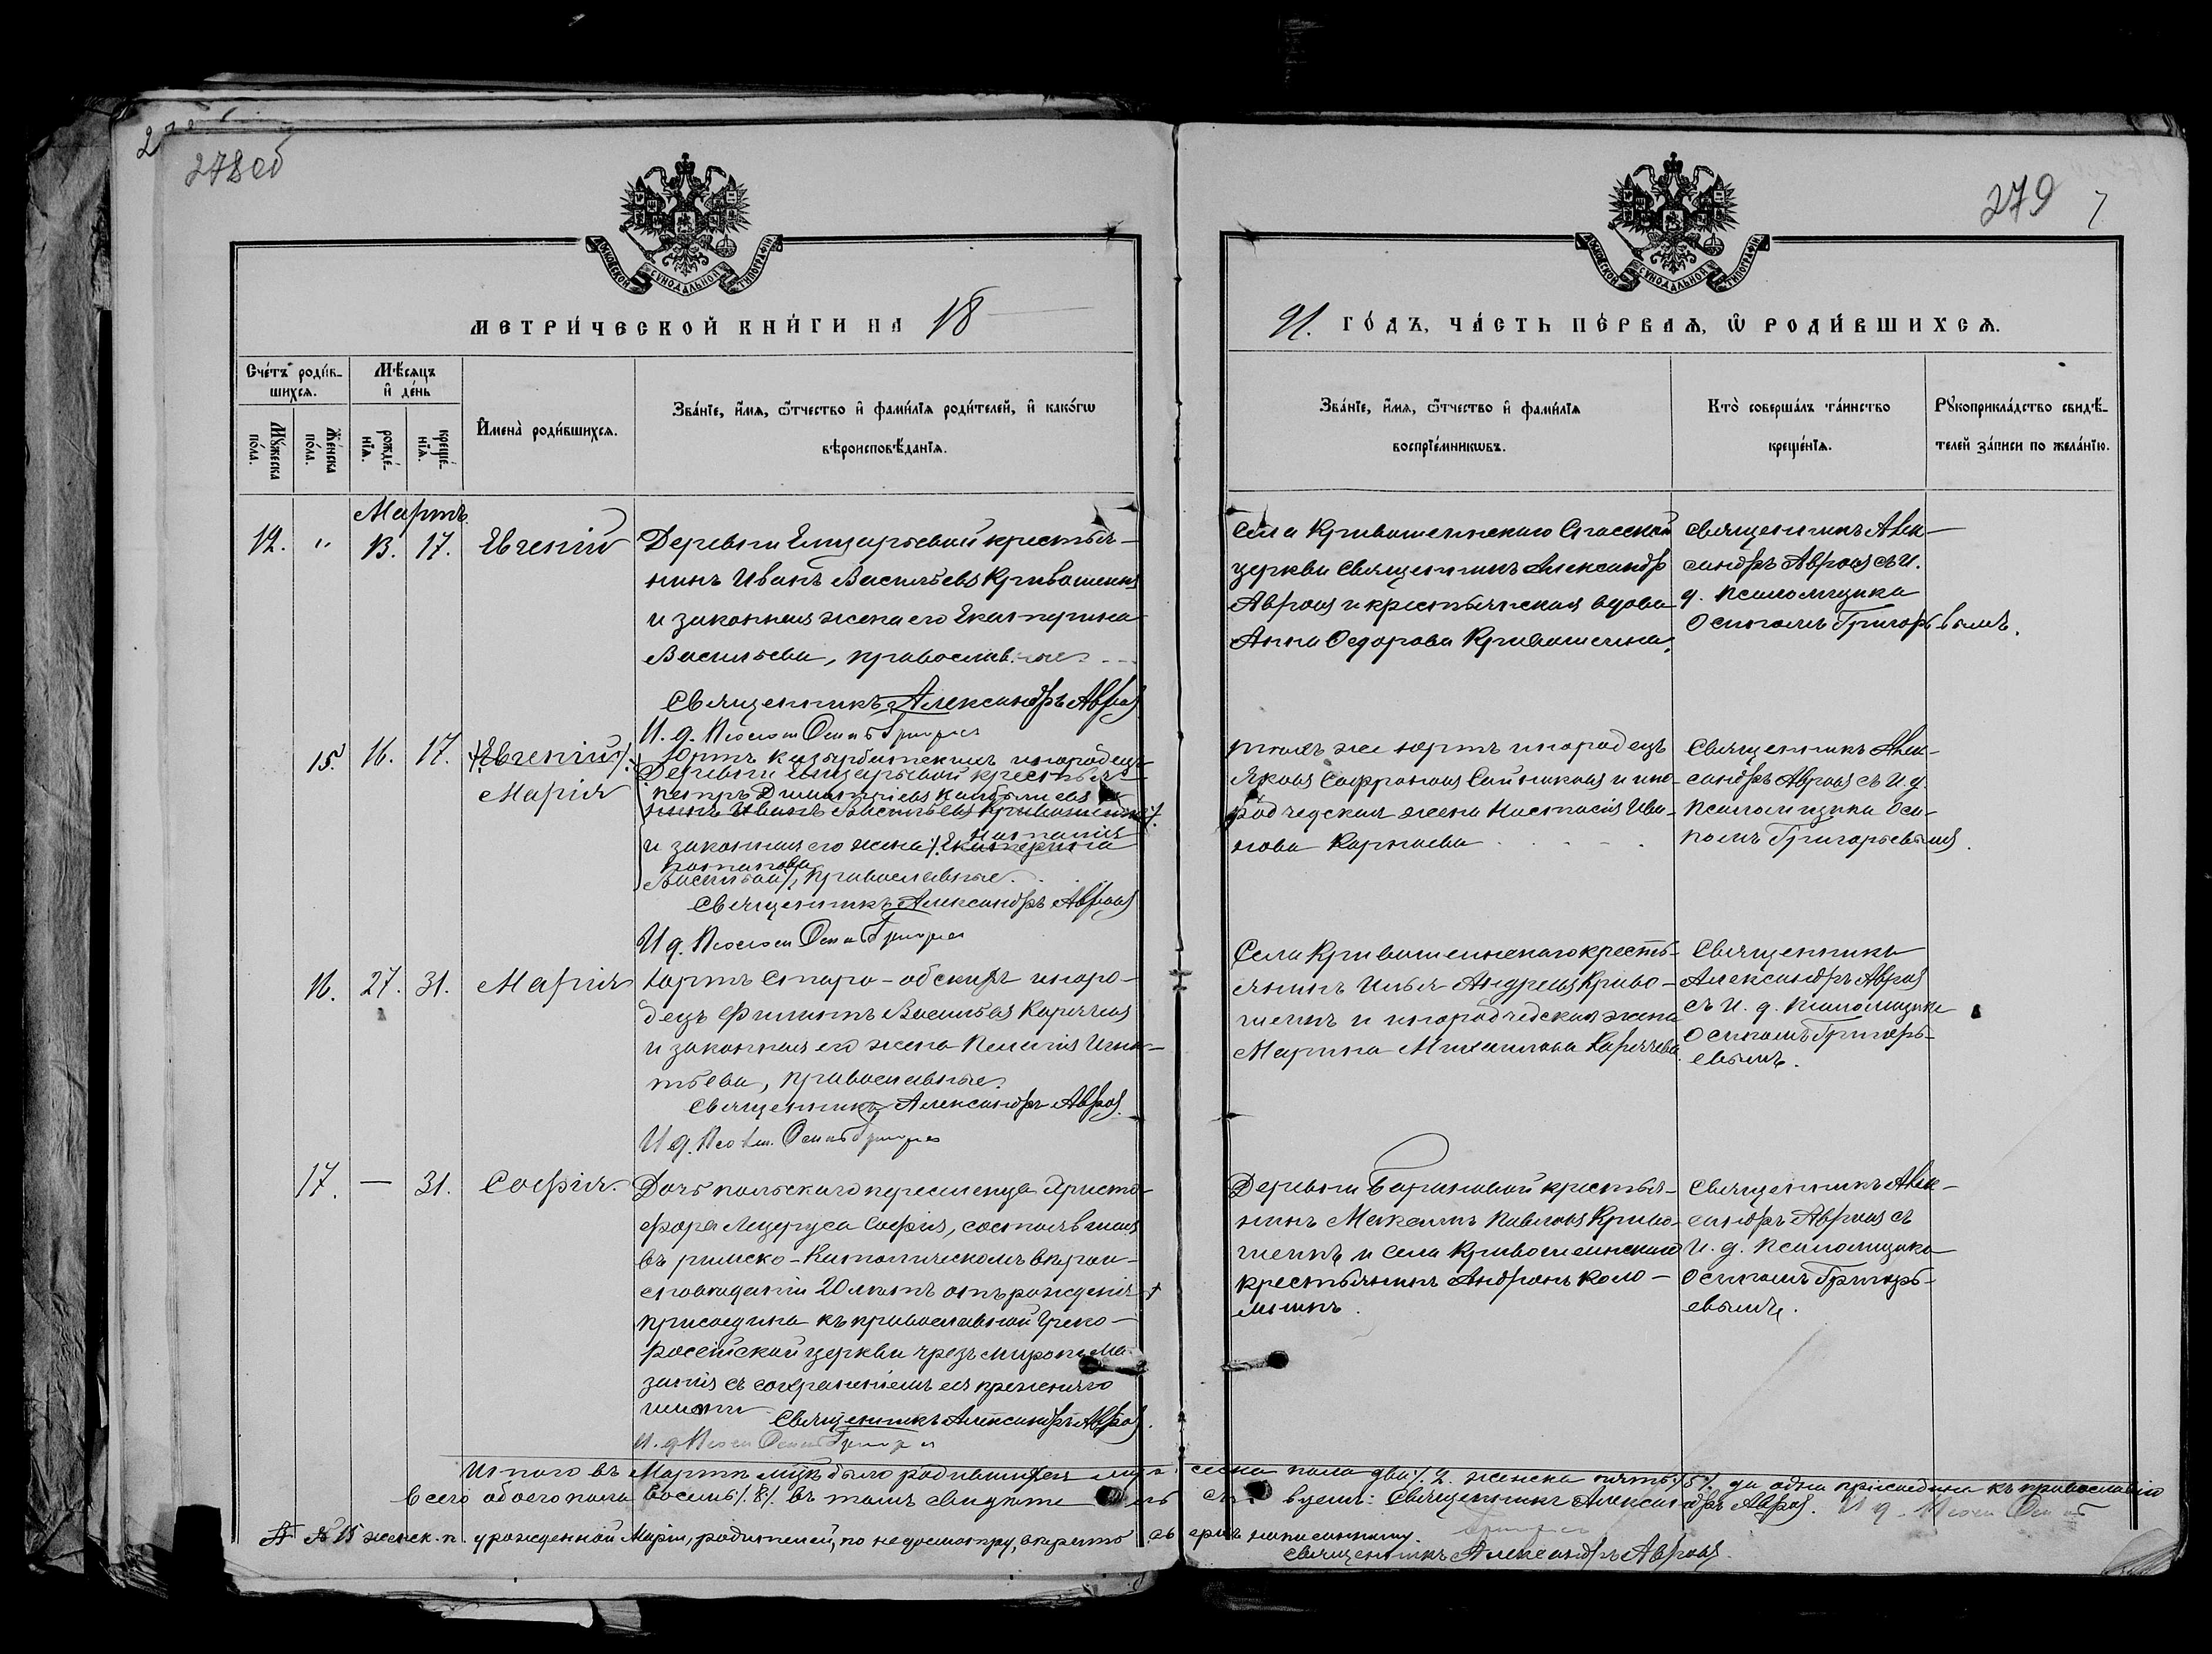 278 об
279
МОСКОВСКОЙ СѴНОДАЛЬНОЙ ТИПОГРАФІИ
МОСКОВСКОЙ СѴНОДАЛЬНОЙ ТИПОГРАФІИ
МЕТРИ́ЧЕСКОЙ КНИ́ГИ НА 18
91. ГО́ДЪ, ЧА́СТЬ ПЕ́РВАѦ, Ѡ҆ РОДИ́ВШИХСѦ.
Сче́тъ роди́в-
шихсѧ.
Мꙋ́жеска по́ла.
Же́нска по́ла.
Мѣ́сѧцъ и҆ де́нь
рожде́-нїѧ.
креще́-нїѧ.
И҆мена̀ роди́вшихсѧ.
Зва́нїе, и҆́мѧ, ѻ҆́тчество и҆ фами́лїѧ роди́телей, и҆ како́гѡ
вѣроисповѣ́данїѧ.
Зва́нїе, и҆́мѧ, ѻ҆́тчество и҆ фами́лїѧ
воспрїе́мникѡвъ.
Кто̀ соверша́лъ та́инство
креще́нїѧ.
Рꙋкоприкла́дство свидѣ́-
телей за́писи по жела́нїю.
Мартъ
12. " 13. 17. Евгеній
Деревни Елизарьевой крестья-
нинъ Иванъ Васильевъ Кривошеинъ
и законная жена его Екатерина
Васильева, православные
Священникъ Александръ Авровъ
И. д. Псалом Осипъ Григорьев
Села Кривошеинскаго Спасской
церкви Священникъ Александръ
Авровъ и крестьянская вдова
Анна Ѳедорова Кривошеина.
Священникъ Алек-
сандръ Авровъ съ И.
д. псаломщика
Осипомъ Григорьевымъ.
15. 16. 17. Евгеній
Марія
Юртъ инородецъ
Деревни Елизарьевой крестья-
Петръ Дмитріевъ
нинъ Иванъ Васильевъ Кривошеинъ
и законная его жена Екатерина
Васильева, православные.
Священникъ Александръ Авровъ
И д. Псалом Осипъ Григорьев
тѣхъ же юртъ инородецъ
Яковъ Сафроновъ и ино-
родческая жена Настасія Ива-
нова
Священникъ Алек-
сандръ Авровъ съ И. д.
псаломщика Оси-
помъ Григорьевымъ.
16. 27. 31. Марія
Юртъ Старо-обскихъ иноро-
децъ Филиппъ Васильевъ Карячевъ
и законная его жена Пелагія Игна-
тьева, православные.
Священникъ Александръ Авровъ.
И д. Псалом. Осипъ Григорьев
Села Кривошеинскаго кресть-
янинъ Илья Андреевъ Криво-
шеинъ и инородческая жена
Марина Михаилова Карячева
Священникъ
Александръ Авровъ
съ И. д. псаломщика
Осипомъ Григорь-
евымъ.
17. — 31. Софія.
Дочь польскаго переселенца Христо-
фора Софія, состоявшая
въ римско-католическомъ вѣрои-
сповѣданіи 20 лѣтъ отъ рожденія
присоедина къ православной Греко-
россійской церкви чрезъ миропома-
занія съ сохраненіемъ ея прежняго
имени Священникъ Александръ Авровъ.
И. д Псалом Осипъ Григорьев
Деревни Барановой крестья-
нинъ Максимъ Павловъ Криво-
шеинъ и села Кривошеинскаго
крестьянинъ Андронъ Коло-
Священникъ Алек-
сандръ Авровъ съ
И. д. псаломщика
Осипомъ Григорь-
евымъ.
Итого въ Мартѣ мцѣ было родившихся мужеска пола два 2. женска пять 5 да одна присоедина къ православію
всего обоего пола восемь 8 въ томъ свидѣтельствуемъ: Священникъ Александръ Авровъ. И д. Псалом Осипъ
№ 15 женск. п. урожденной Маріи, родителей, по недосмотру,
Священникъ Александръ Авровъ.